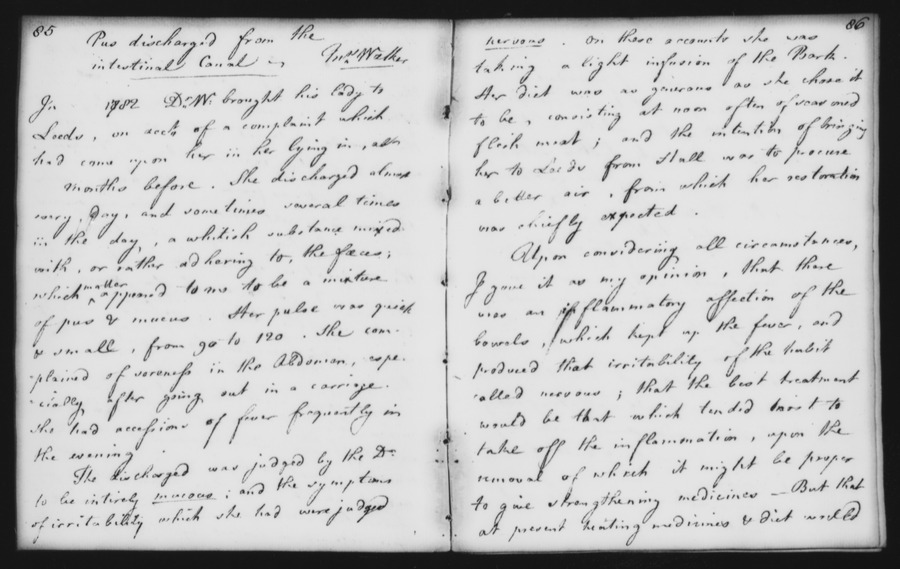 85
Pus discharged from the
intestinal Canal
Mrs Walker
In 1782 Dr W. brought his lady to
Leeds, on acct of a complaint which
had come upon her in her lying in,
months before. She discharged almost
every day, and sometimes several times
in the day, a whitish substance mixed
with, or rather adhering to, the fæces;
which matter appeared to me to be a mixture
of pus & mucus. Her pulse was quick
& small, from 90 to 120. She com-
-plained of soreness in the Abdomen, espe-
-cially after going out in a carriage.
She had accessions of fever frequently in
the evening.
The discharged was judged by the Dr
to be intirely mucous; and the symptoms
of irritability which she had were judged
86
nervous. On these accounts she was
taking a light infusion of the Bark.
Her diet was as generous as she chose it
to be, consisting at noon often of seasoned
flesh meat; and the intention of bringing
her to Leeds from Hull was to procure
a better air, from which her restoration
was chiefly expected.
Upon considering all circumstances,
I gave it as my opinion, that there
was an inflammatory affection of the
bowels, which kept up the fever, and
produced that irritability of the habit
called nervous; that the best treatment
would be that which tended most to
take off the inflammation, upon the
removal of which it might be proper
to give strengthening medicines — But that
at present heating medicines & diet would